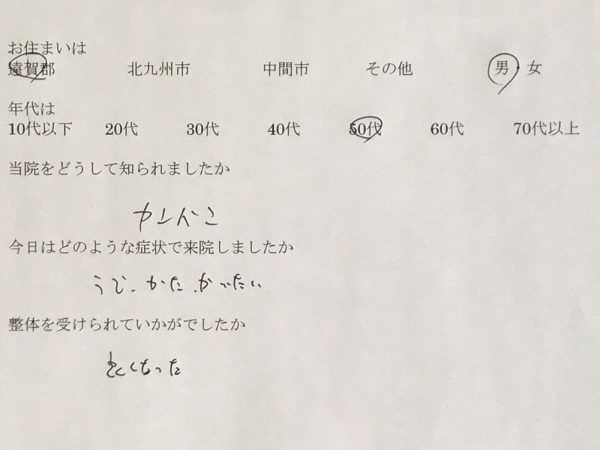 お住まいは
遠賀郡 北九州市 中間市 その他 男・女
年代は
10代以下 20代 30代 40代 50代 60代 70代以上
当院をどうして知られましたか
カンバン
今日はどのような症状で来院しましたか
うで.かた.がいたい
整体を受けられていかがでしたか
良くなった